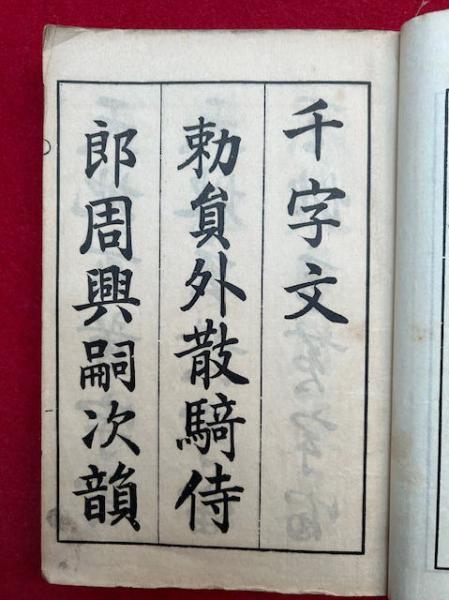 千字文
勅貟外散騎侍
郎周興嗣次韻